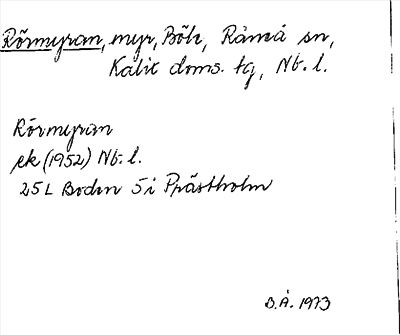 Rörmyran, myr, Böle, Råneå sn,
Kalix doms. tg, Nb. l.
Rörmyran
ek (1952) Nb. l.
25L Boden 5i Prästholm
B.Å. 1973